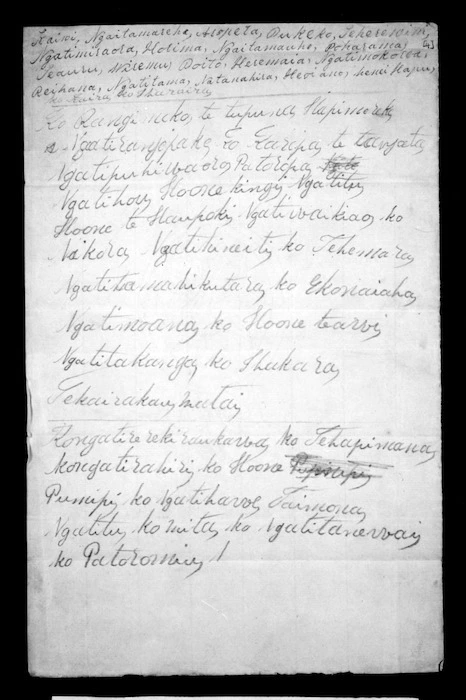 Kaiwi, Ngaitamareho, Aropeta, Pukeko, Teherewini,
Ngatimiraora, Hotima, Ngaitamauho, Poharama,
Teauru, Wiremu Poito, Heremaia, Ngatimokotoa,
Reihana, Ngatitama, Natanahira, Heoriano,
ko Taira, ko Shuraira
Ko Rangi neko, te tupuna Hapimereka
Ngatirangipake, Ko Karipa, te tangata
Ngatipuhiwaoro, Patoropa,
Ngatihou, Hoone kingi, Ngatitu,
Hoone te Haupoki, Ngatiwaikiao, ko
Nikora, Ngatihineiti, ko Tehemara,
Ngatitamahikutara, ko Ekonaiaha,
Ngatimoana, ko Hoone tearwi,
Ngatitakanga, ko Hukara,
Tekairakau, Matai,
Kongatirerekiraukawa, ko Tehapimana,
kongatirahiri, ko Hoone Pumipi
Pumipi, ko Ngatihawe, Taimona,
Ngatitu, ko Mita, ko Ngatitanewai,
ko Patoromu, !